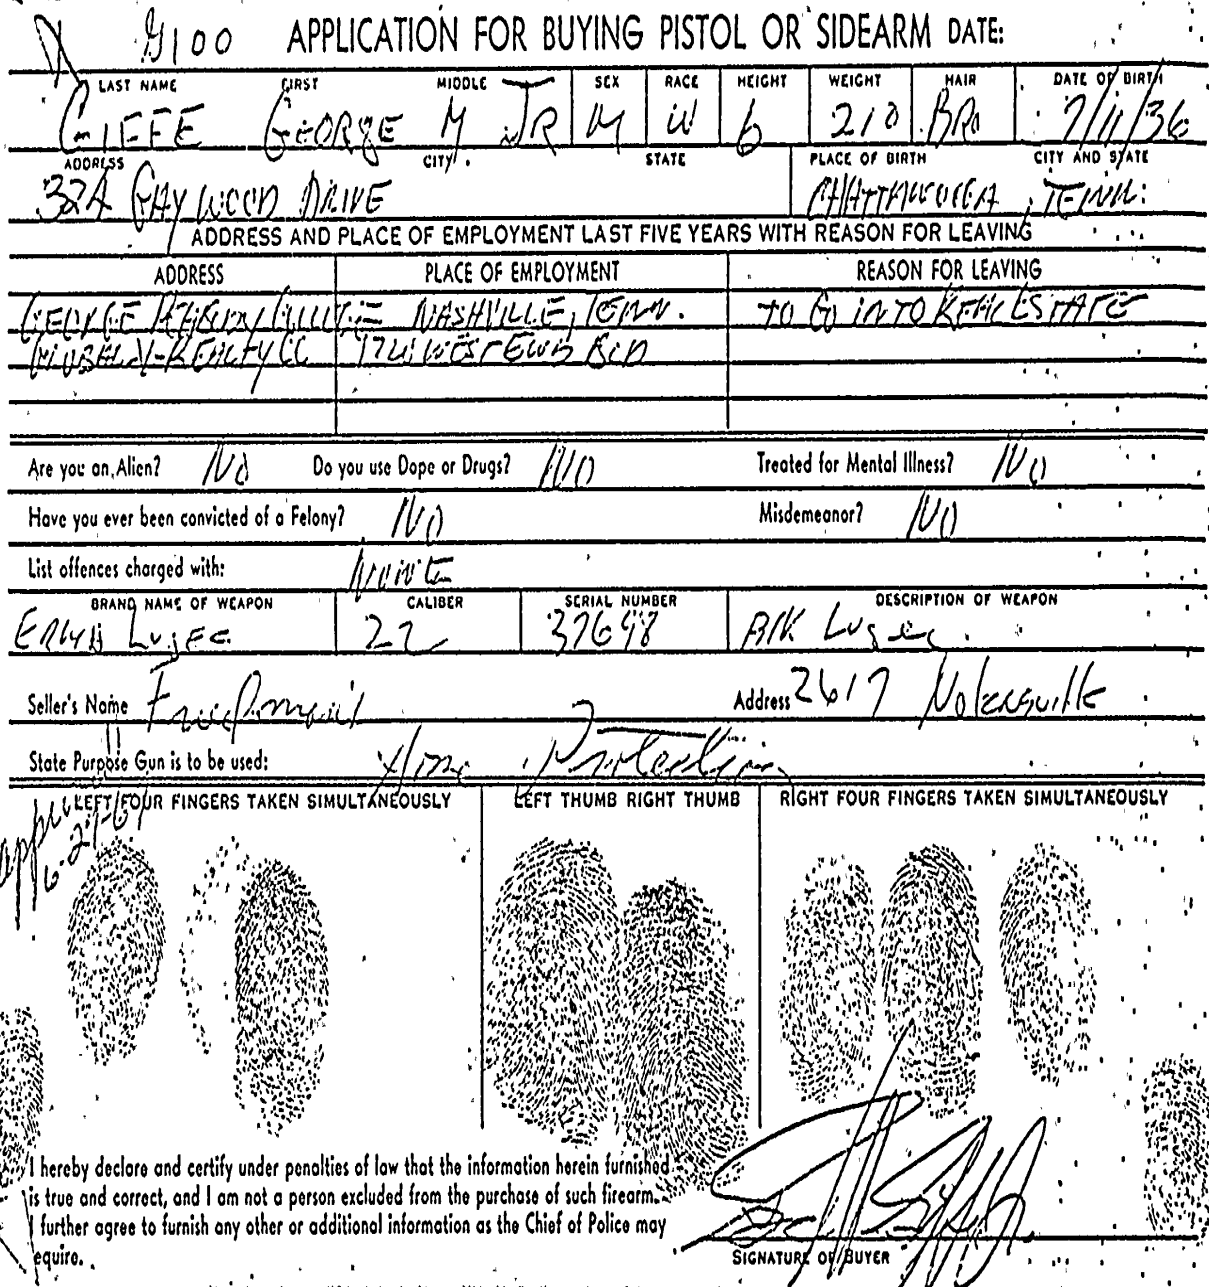 100 APPLICATION FOR BUYING PISTOL OR SIDEARM DATE:
LAST NAME FIRST MIDDLE SEX RACE HEIGHT WEIGHT HAIR DATE OF BIRTH
GIFFE GEORGE M JR M W 6 210 BRO 7/11/36
ADDRESS CITY STATE PLACE OF BIRTH CITY AND STATE
324 GAYWOOD DRIVE CHATTANOOGA, TENN.
ADDRESS AND PLACE OF EMPLOYMENT LAST FIVE YEARS WITH REASON FOR LEAVING
ADDRESS PLACE OF EMPLOYMENT REASON FOR LEAVING
GEORGE PEABODY COLLEGE NASHVILLE, TENN. TO GO INTO REAL ESTATE
REALTY CO
Are you an Alien? NO Do you use Dope or Drugs? NO Treated for Mental Illness? NO
Have you ever been convicted of a Felony? NO Misdemeanor? NO
List offences charged with: NONE
BRAND NAME OF WEAPON CALIBER SERIAL NUMBER DESCRIPTION OF WEAPON
ERMA Luger 22 37698 Blk Luger
Seller's Name Friedman's Address 2617 Nolensville
State Purpose Gun is to be used: Home Protection
LEFT FOUR FINGERS TAKEN SIMULTANEOUSLY LEFT THUMB RIGHT THUMB RIGHT FOUR FINGERS TAKEN SIMULTANEOUSLY
I hereby declare and certify under penalties of law that the information herein furnished
is true and correct, and I am not a person excluded from the purchase of such firearm.
I further agree to furnish any other or additional information as the Chief of Police may
equire.
SIGNATURE OF BUYER